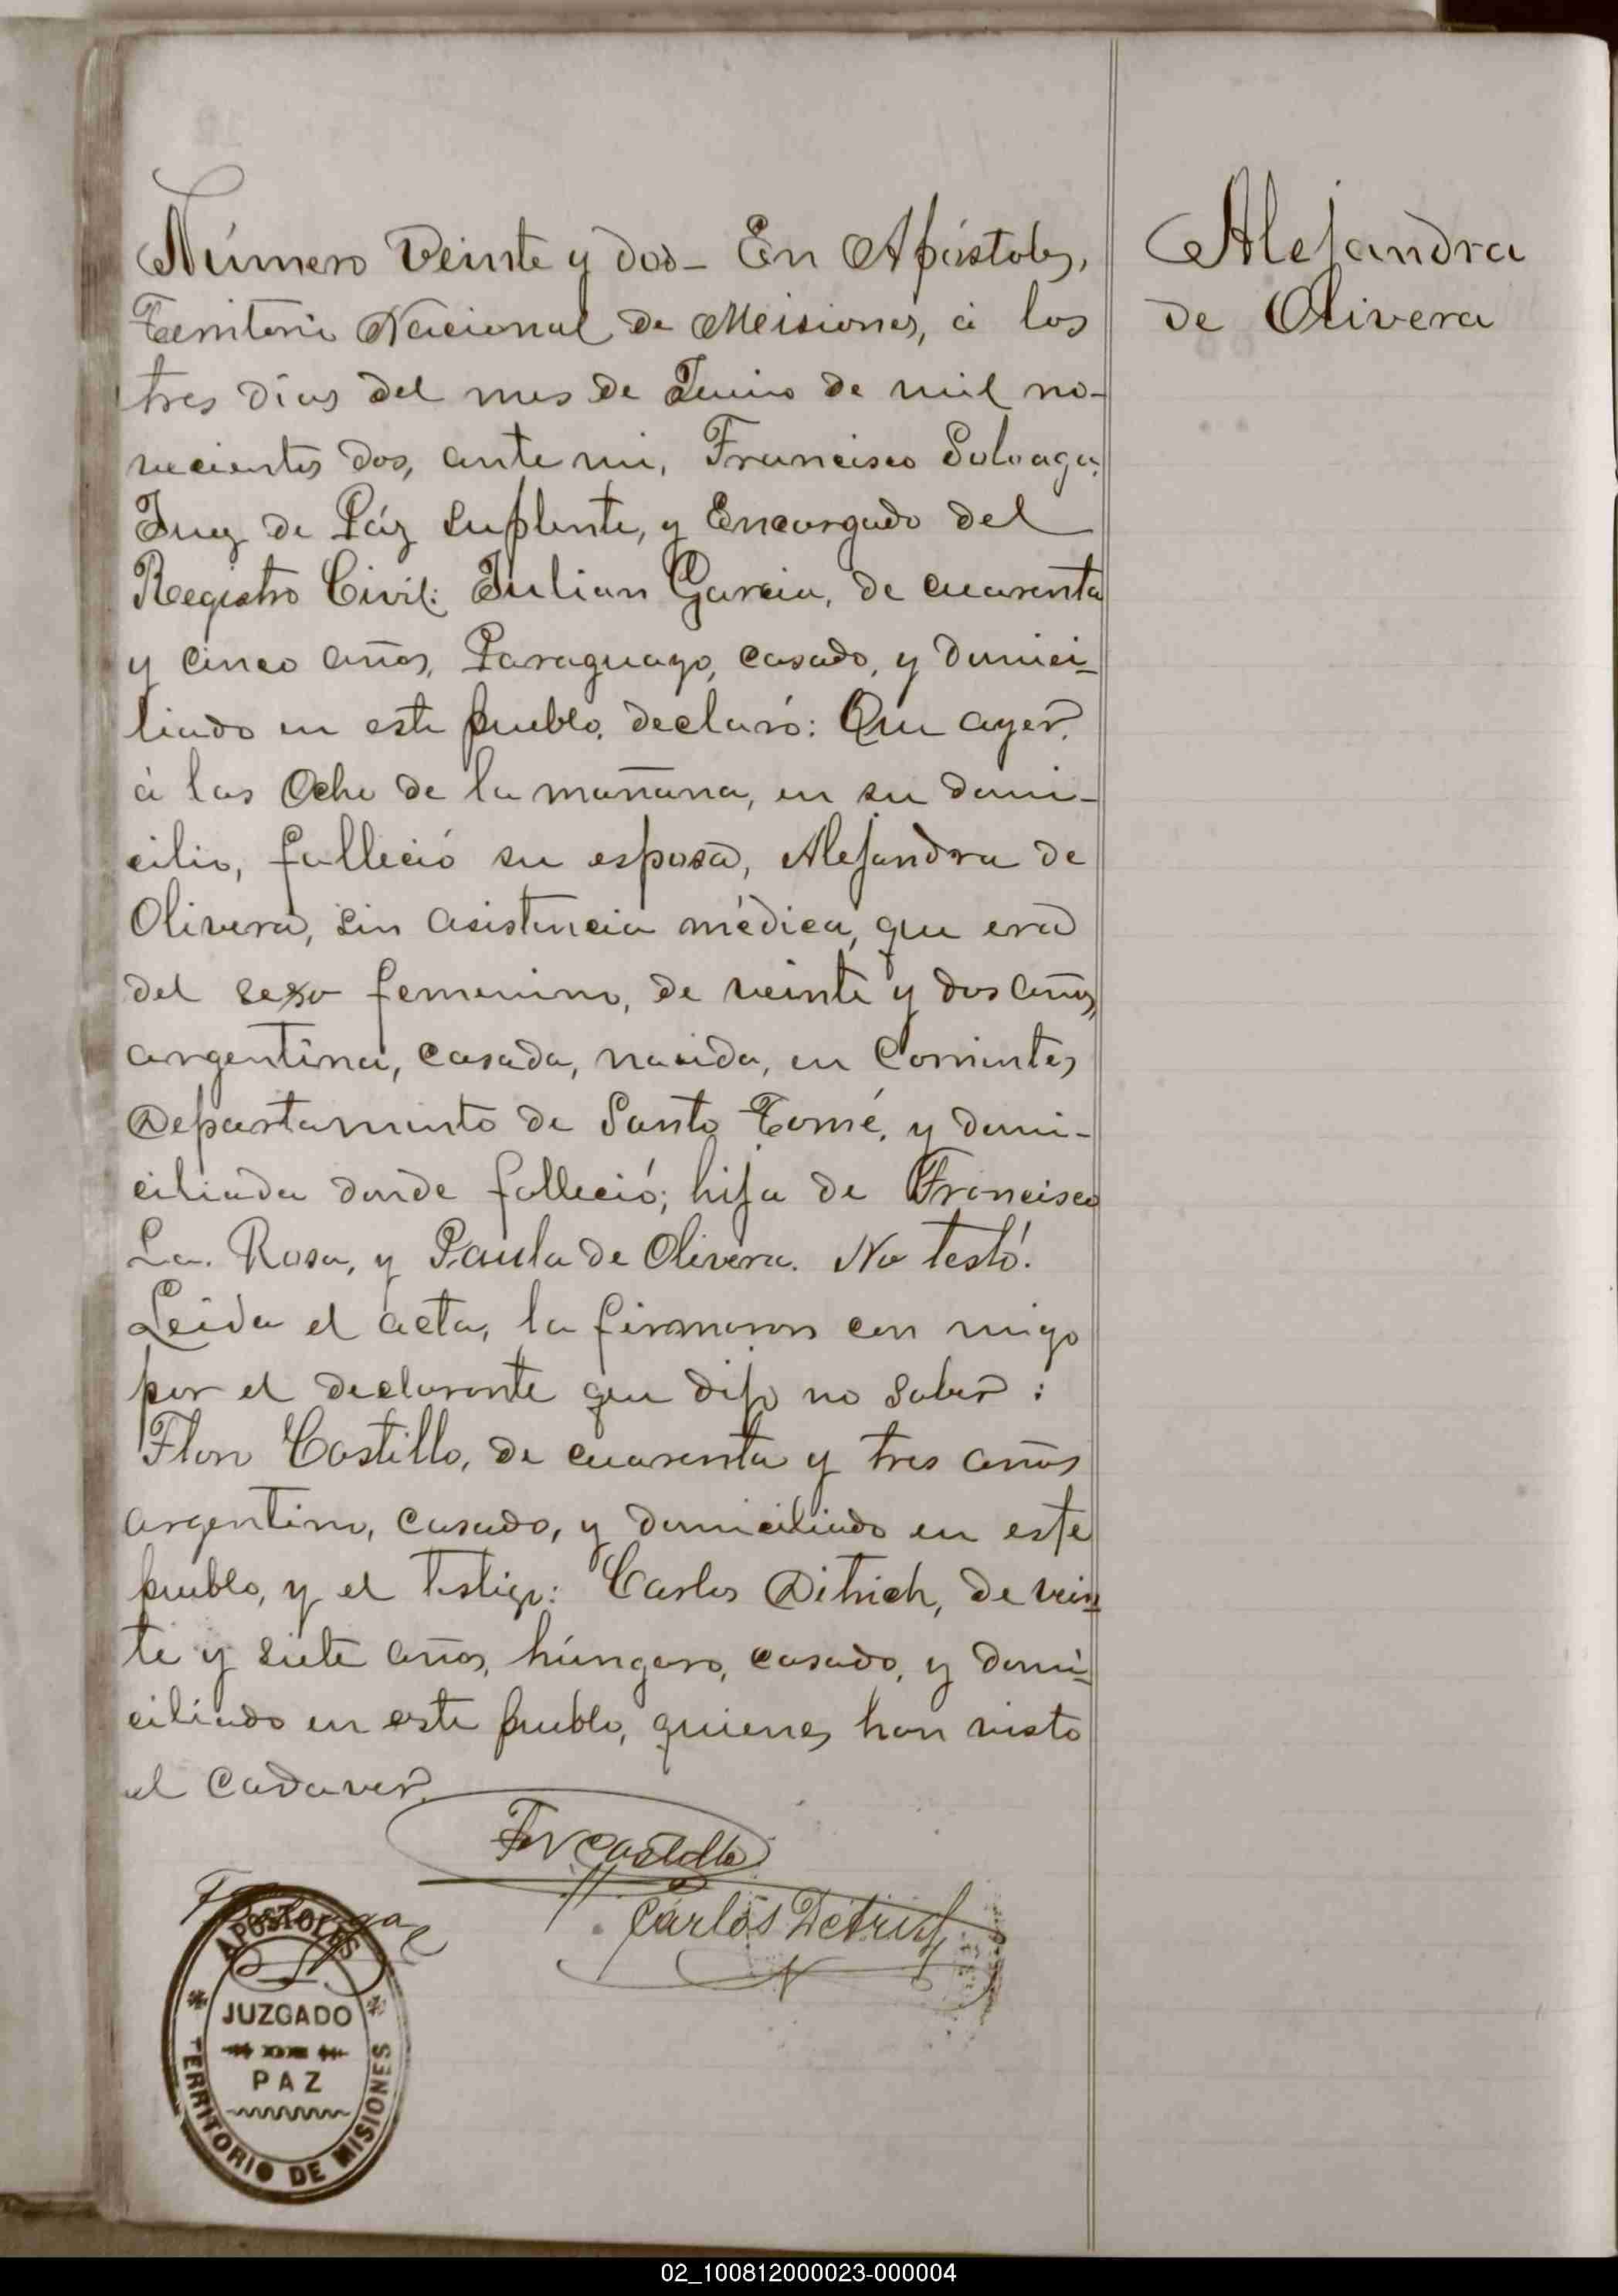 Número Veinte y dos- En Apóstoles,
Territorio Nacional de Misiones, á los
tres días del mes de Junio de mil no-
vecientos dos, ante mi, Francisco Soloaga,
Juez de Páz Suplente, y Encargado del
Registro Civil: Julian Garcia, de cuarenta
y cinco años, Paraguayo, casado, y domici-
liado en este pueblo, declaró: Que ayer,
á las Ocho de la mañana, en su domi-
cilio, falleció su esposa, Alejandra de
Olivera, sin asistencia médica, que era
del sexo femenino, de veinte y dos años,
argentina, casada, nacida, en Corrientes,
Departamento de Santo Tomé, y domi-
ciliada donde falleció; hija de Francisco
La. Rosa, y Paula de Olivera. No testó.
Leída el acta, la firmaron con migo
por el declarante que dijo no saber:
Flor Castillo, de cuarenta y tres años
argentino, casado, y domiciliado en este
pueblo, y el testigo: Carlos Ditrich, de vein-
te y siete años, húngaro, casado, y domi-
ciliado en este pueblo, quienes han visto
el cadaver.
Alejandra
de Olivera
Castillo
Carlos Detrich
APOSTOLES
JUZGADO
PAZ
TERRITORIO DE MISIONES
02_100812000023-000004